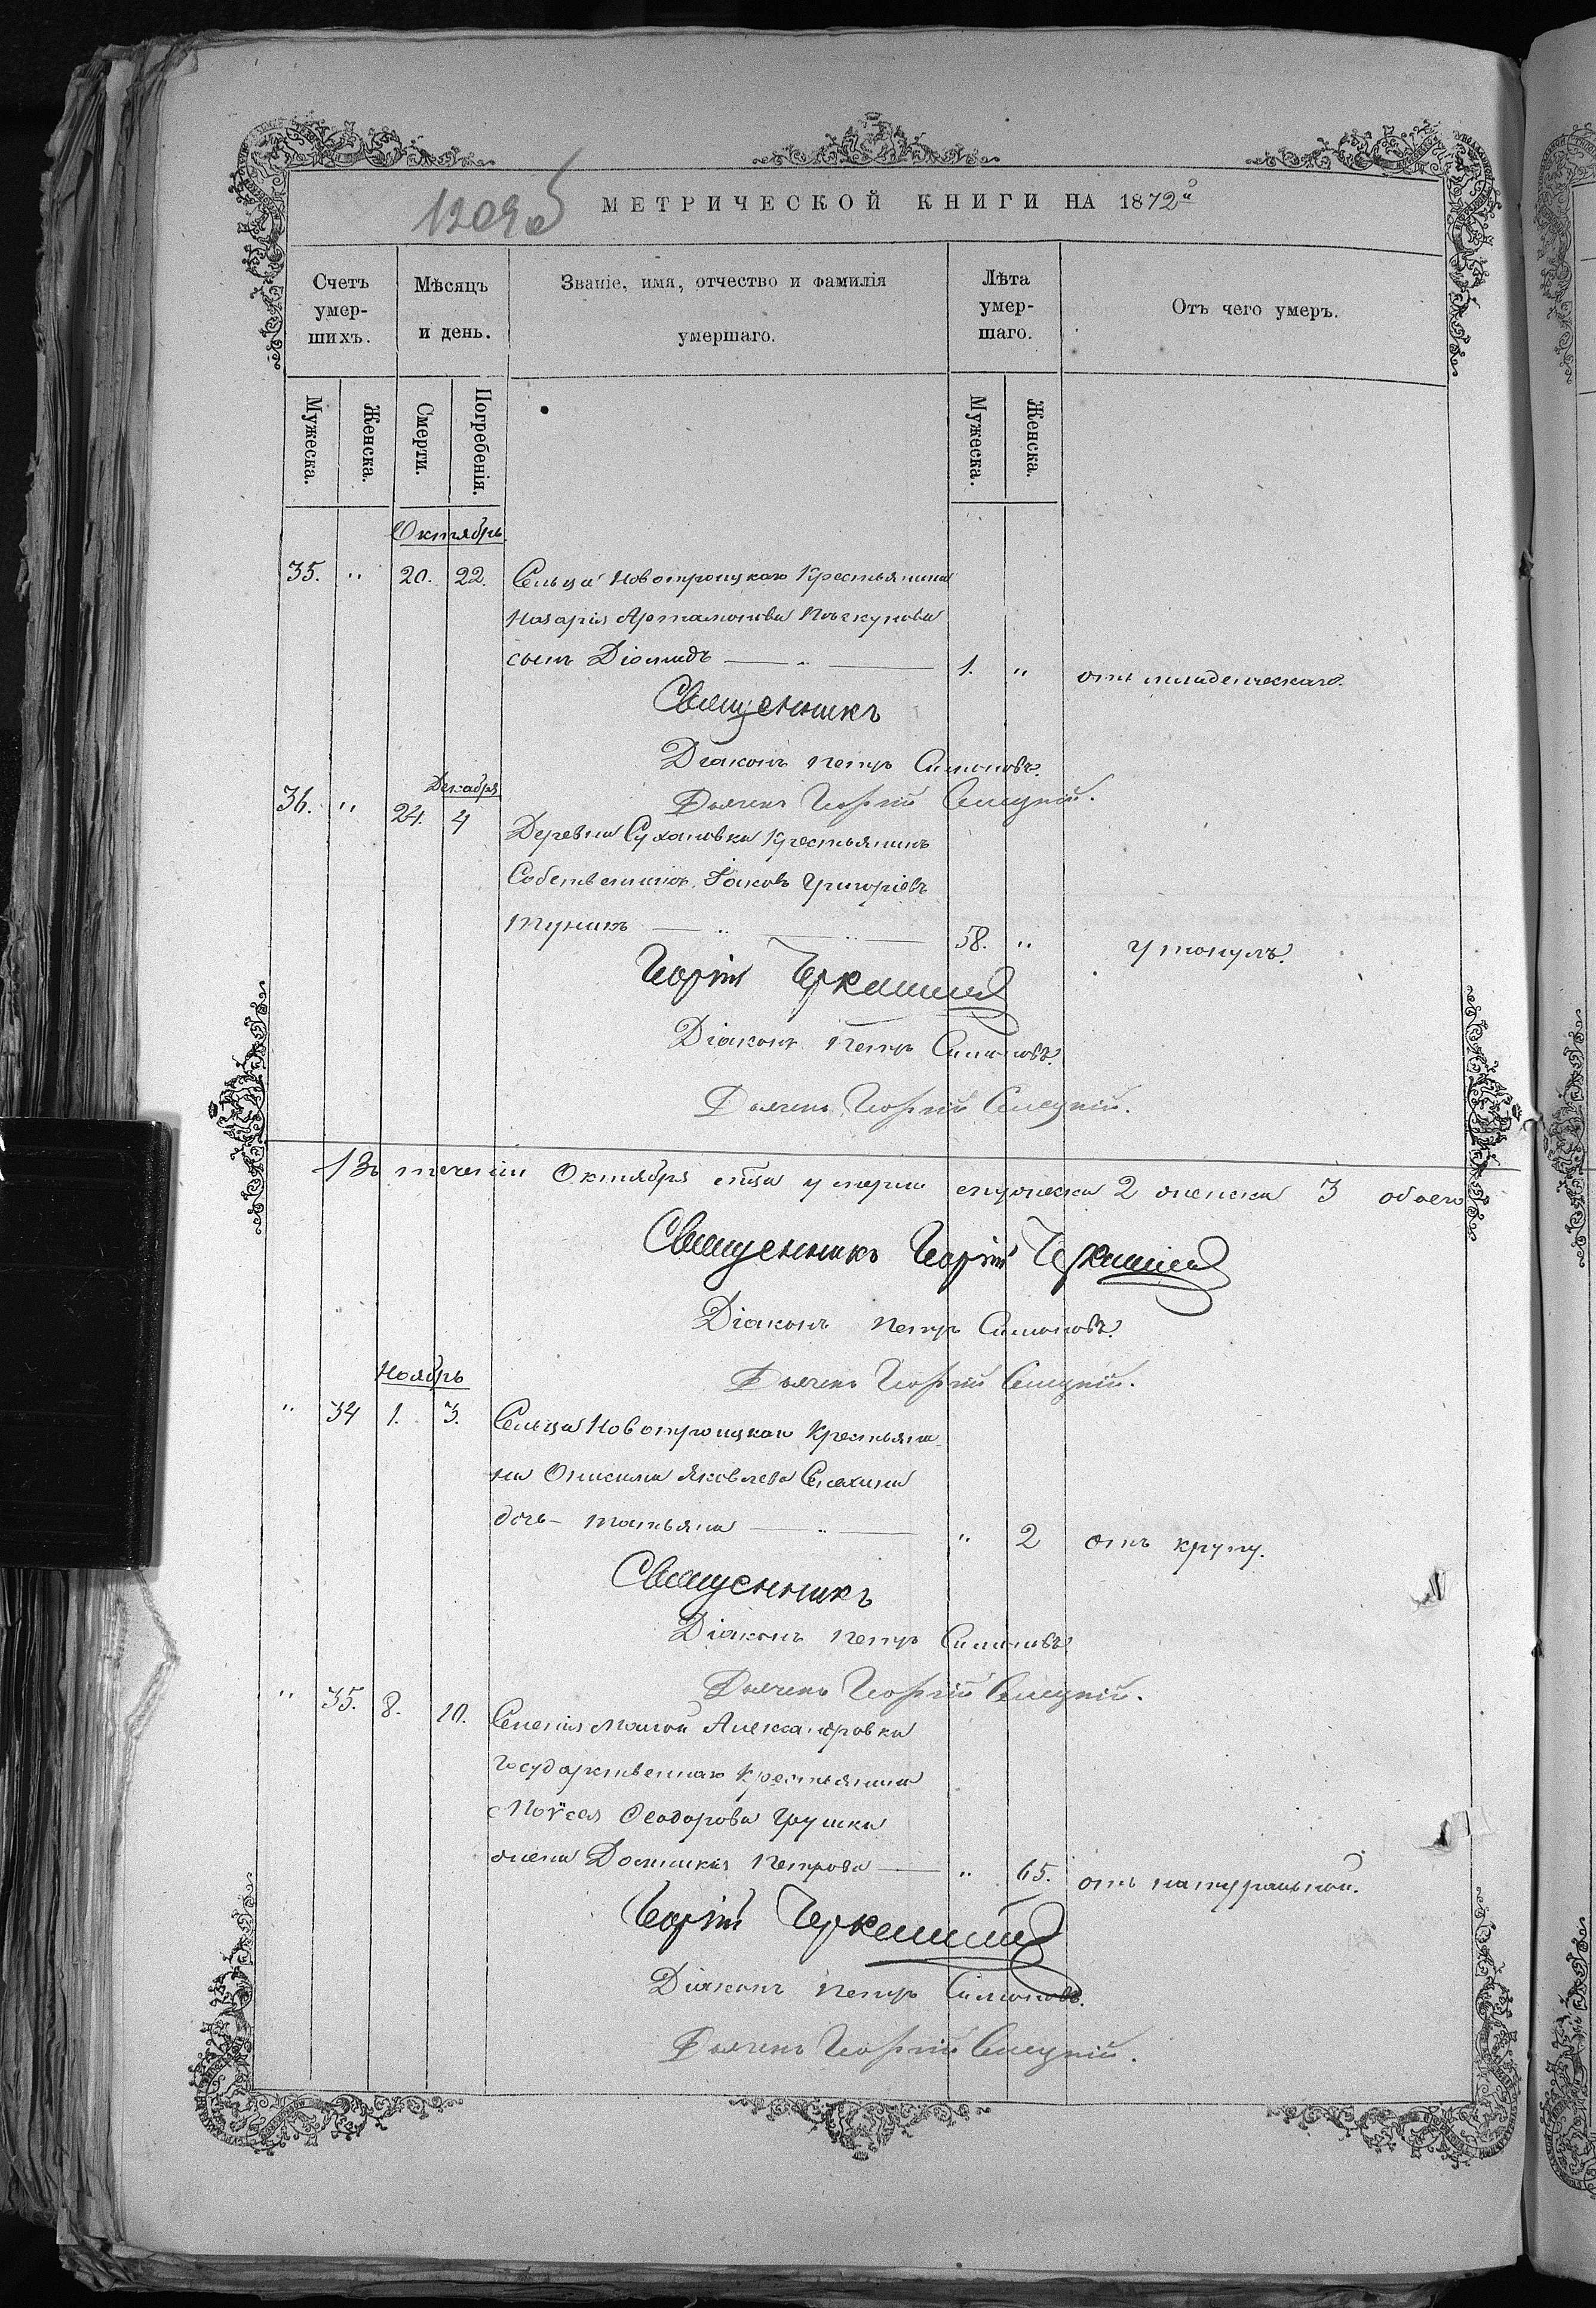 1209об
МЕТРИЧЕСКОЙ КНИГИ НА 1872й
Счетъ умер-шихъ.
Мѣсяцъ и день.
Званіе, имя, отчество и фамилія умершаго.
Лѣта умер-шаго.
Отъ чего умеръ.
Мужеска.
Женска.
Смерти.
Погребенія.
Мужеска.
Женска.
Октябрь.
35. " 20. 22. Сельца Новотроицкаго Крестьянина
Назарія Артамонова
сынъ Діомидъ — " — 1. " отъ младенческаго.
Священникъ
Діаконъ Петръ Симоновъ.
Дьячекъ Георгій
Декабря
36. " 24. 4 Деревни Сухановки Крестьянинъ
Собственникъ Іаковъ Григоріевъ
— " — " — 58. " утонулъ.
Георгій
Діаконъ Петръ Симоновъ.
Дьячекъ Георгій
Въ теченіи Октября м-ца умерло мужеска 2 женска 3 обоего
Священникъ Георгій
Діаконъ Петръ Симоновъ.
Дьячекъ Георгій
Ноябрь
" 34 1. 3. Сельца Новотроицкаго Крестьяни-
на Онисима Яковлева
дочь – Татьяна — " — " 2 отъ крупу.
Священникъ
Діаконъ Петръ Симоновъ
Дьячекъ Георгій
" 35. 8. 10. Селенія Малой Александровки
Государственнаго Крестьянина
Моѵсея Ѳеодорова Грушки
жена Домникія Петрова — " 65. отъ натуральной.
Георгій
Діаконъ Петръ Симоновъ.
Дьячекъ Георгій